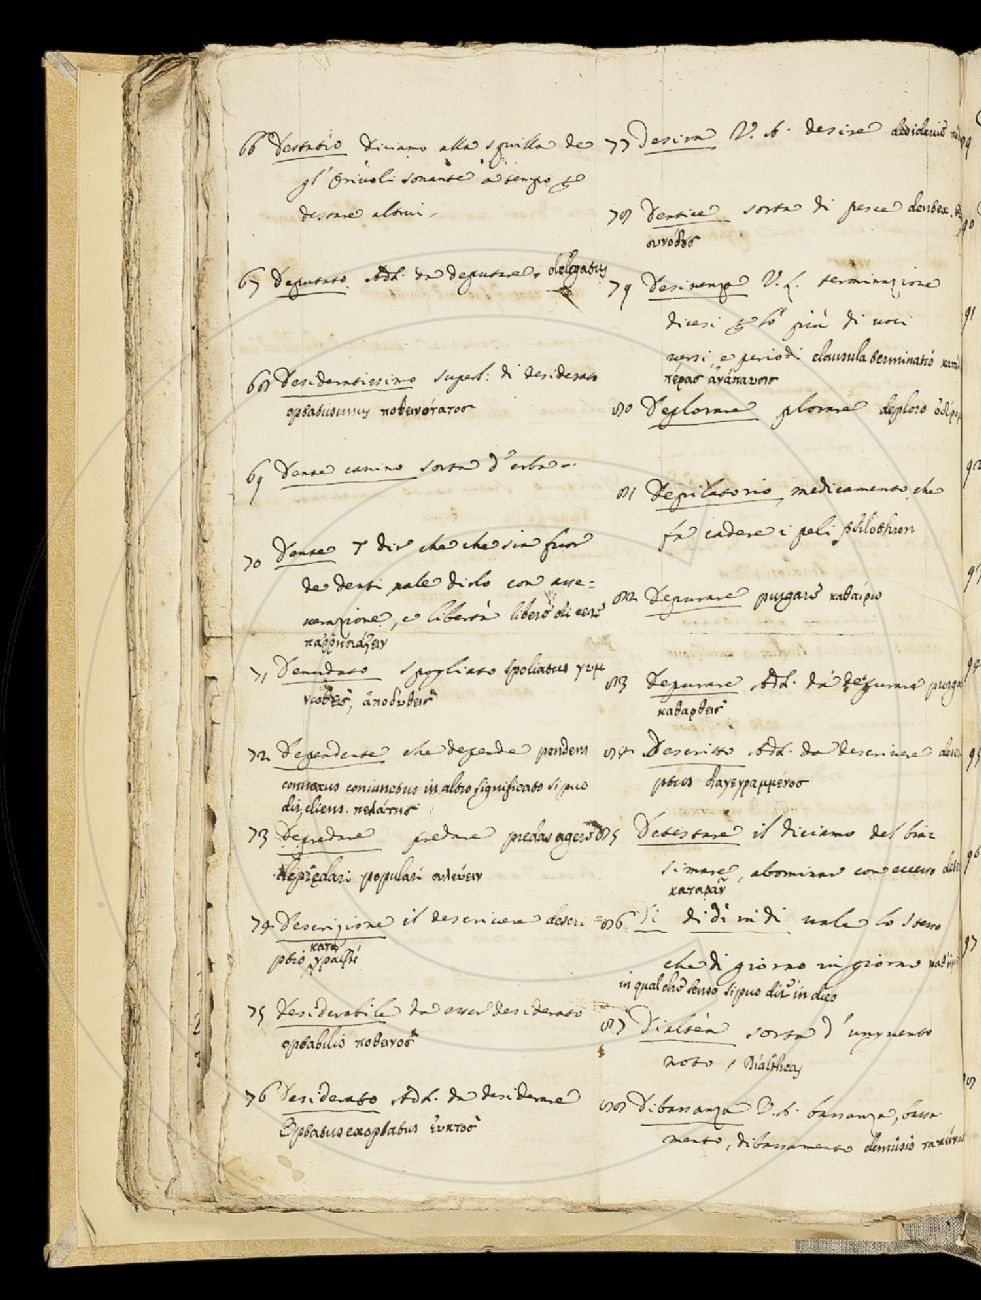 66 Destatoio diciamo alla squilla de
gl' Oriuoli sonante a tempo per
destare altrui.
67 Deputato Add. da deputare. delegatus
68 Desideratissimo superl: di desiderato
optatissimus ποθεινότατος
69 Dente canino sorta d'erba
70 Dente dir che che sia fuor
de denti vale dirlo con asse=
verazione, e libertà libere dicere
παῤῥησιάζειν
71 Denudato spogliato spoliatus γυμ
νωθεὶς, ἀποδυθεὶς
72 Dependente che depende pendens
coniunctus in altro significato si puo
dir, cliens. πελάτης
73 Depredare predare predas agere
depredari populari συλεύειν
74 Descrizione il descrivere descri
ptio καταγραφή
75 Desiderabile da esser desiderato
optabilis ποθεινος
76 Desiderato Add. da desiderare
Optatus exoptatus εὐκτος
77 Desira V. A. desire desiderium
78 Dentice sorta di pesce dentex
συνόδος
79 Desinenza V. L. terminazione
dicesi per lo più di voci
versi e periodi clausula terminatio
πέρας ἀνάπαυσις
80 Deplorare plorare deploro
81 Depilatorio, medicamento che
fa cadere i peli psilothron
82 Depurare purgare καθαίρω
83 Depurare Add. da depurare
καθαρθεις
84 Descritto Add. da descrivere descri
ptus διαγεγραμμένος
85 Detestare il diciamo del bia
simare, abominar con eccesso
καταρᾶν
86 Di di dì in dì vale lo stesso
che di giorno in giorno
in qualche senso si puo dir in dies
87 Dialtea sorta d'unguento
noto, Dialthea
88 Dibassanza V. A. bassanza, bassa
mento, dibassamento demissio